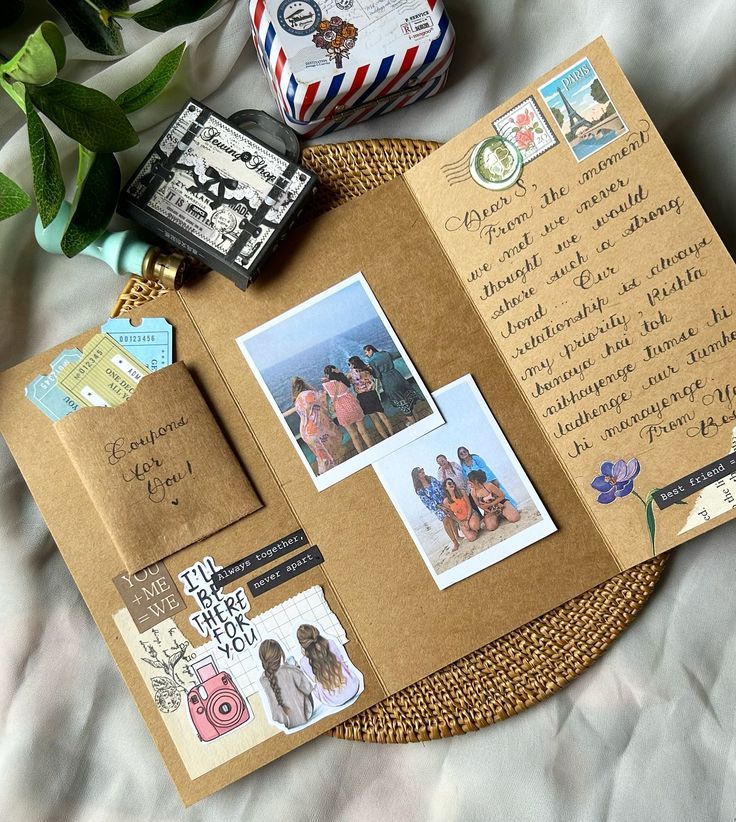 Sewing Shop
IT IS M
PARIS
Dear S,
From the moment
we met we never
thought we would
share such a strong
bond ... Our
relationship is always
my priority, Rishta
banaya hai toh
nibhayenge tumse hi
ladhenge aur tumhe
hi manayenge.
From Yo
Bes
Best friend =
00123456
00012345
ONE
ADM
ALL
Coupons
for
You!
YOU
+ME
=WE
I'LL
BE
THERE
FOR
YOU
Always together,
never apart.